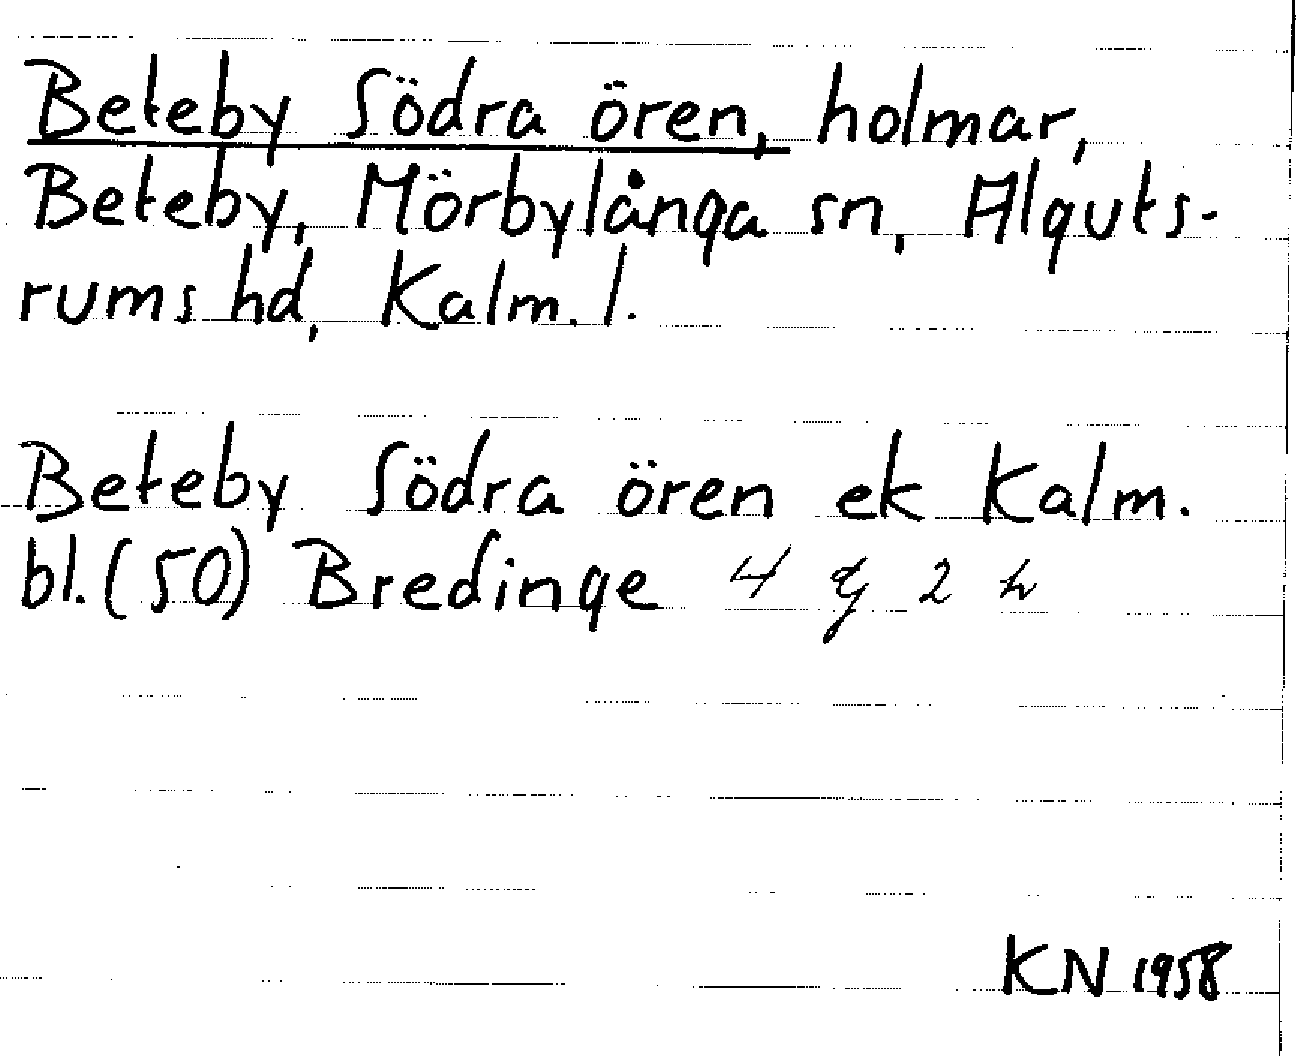 Beteby Södra ören, holmar,
Beteby, Mörbylånga sn, Alguts-
rums hd, Kalm. l.
Beteby Södra ören ek Kalm.
bl. (50) Bredinge 4 g 2 h
KN 1958